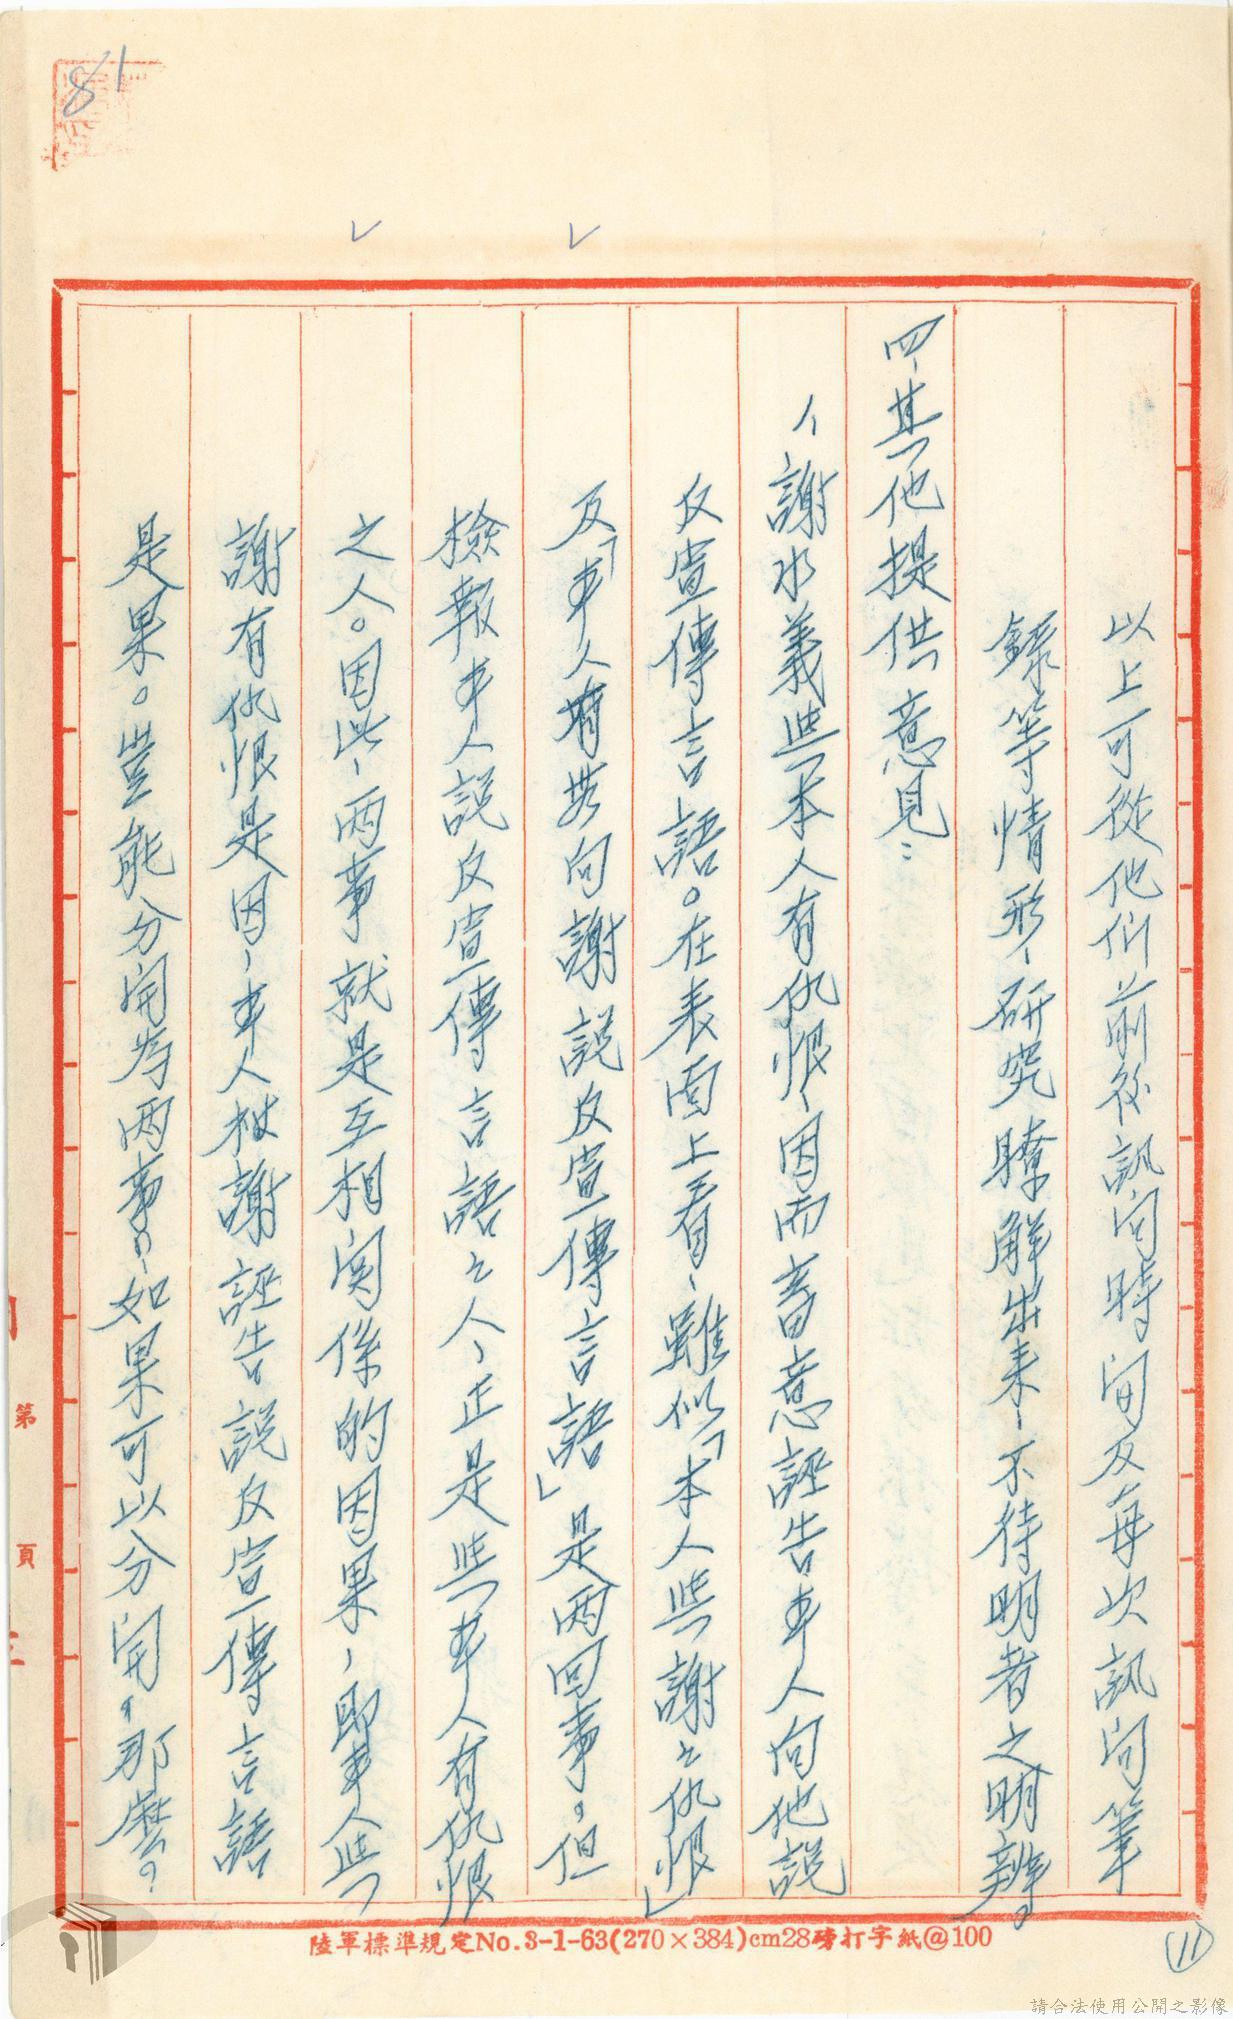 81
以上可從他们前後訊问時间及每次訊问筆
錄等情形、研究瞭解出来、不待明者之明辨。
四、其他提供意見：
1、謝水義与本人有仇恨、因而蓄意誣告本人向他說
反宣傳言語。在表面上看、雖似「本人与謝之仇恨」
及「本人有無向謝說反宣傳言語」是兩回事。但
檢報本人說反宣傳言語之人、正是与本人有仇恨
之人。因此、兩事就是互相関係的因果、即本人与
謝有仇恨是因、本人被謝誣告說反宣傳言語
是果。豈能分開為兩事？如果可以分開，那麼。
第 頁
陸軍標準規定No.3-1-63(270×384)cm28磅打字紙@100
11
請合法使用公開之影像